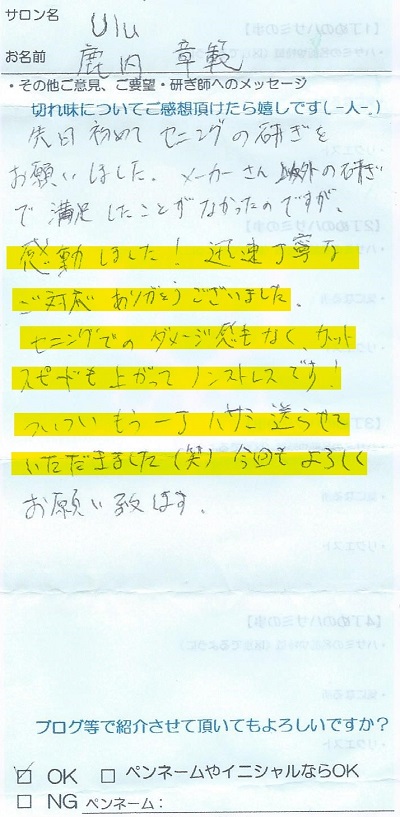 サロン名 Ulu
お名前 鹿内 章範
・その他ご意見、ご要望・研ぎ師へのメッセージ
切れ味についてご感想頂けたら嬉しです(-人-)
先日初めて セニングの研ぎを
お願いしました。メーカーさん以外の研ぎ
で満足したことがなかったのですが、
感動しました! 迅速丁寧な
ご対応 ありがとうございました。
セニングでの ダメージ感もなく、カット
スピードも上がって ノンストレスです!
ついつい もう一丁 ハサミ 送らせて
いただきました(笑) 今回も よろしく
お願い致します。
ブログ等で紹介させて頂いてもよろしいですか?
☑ OK □ ペンネームやイニシャルならOK
□ NG ペンネーム: